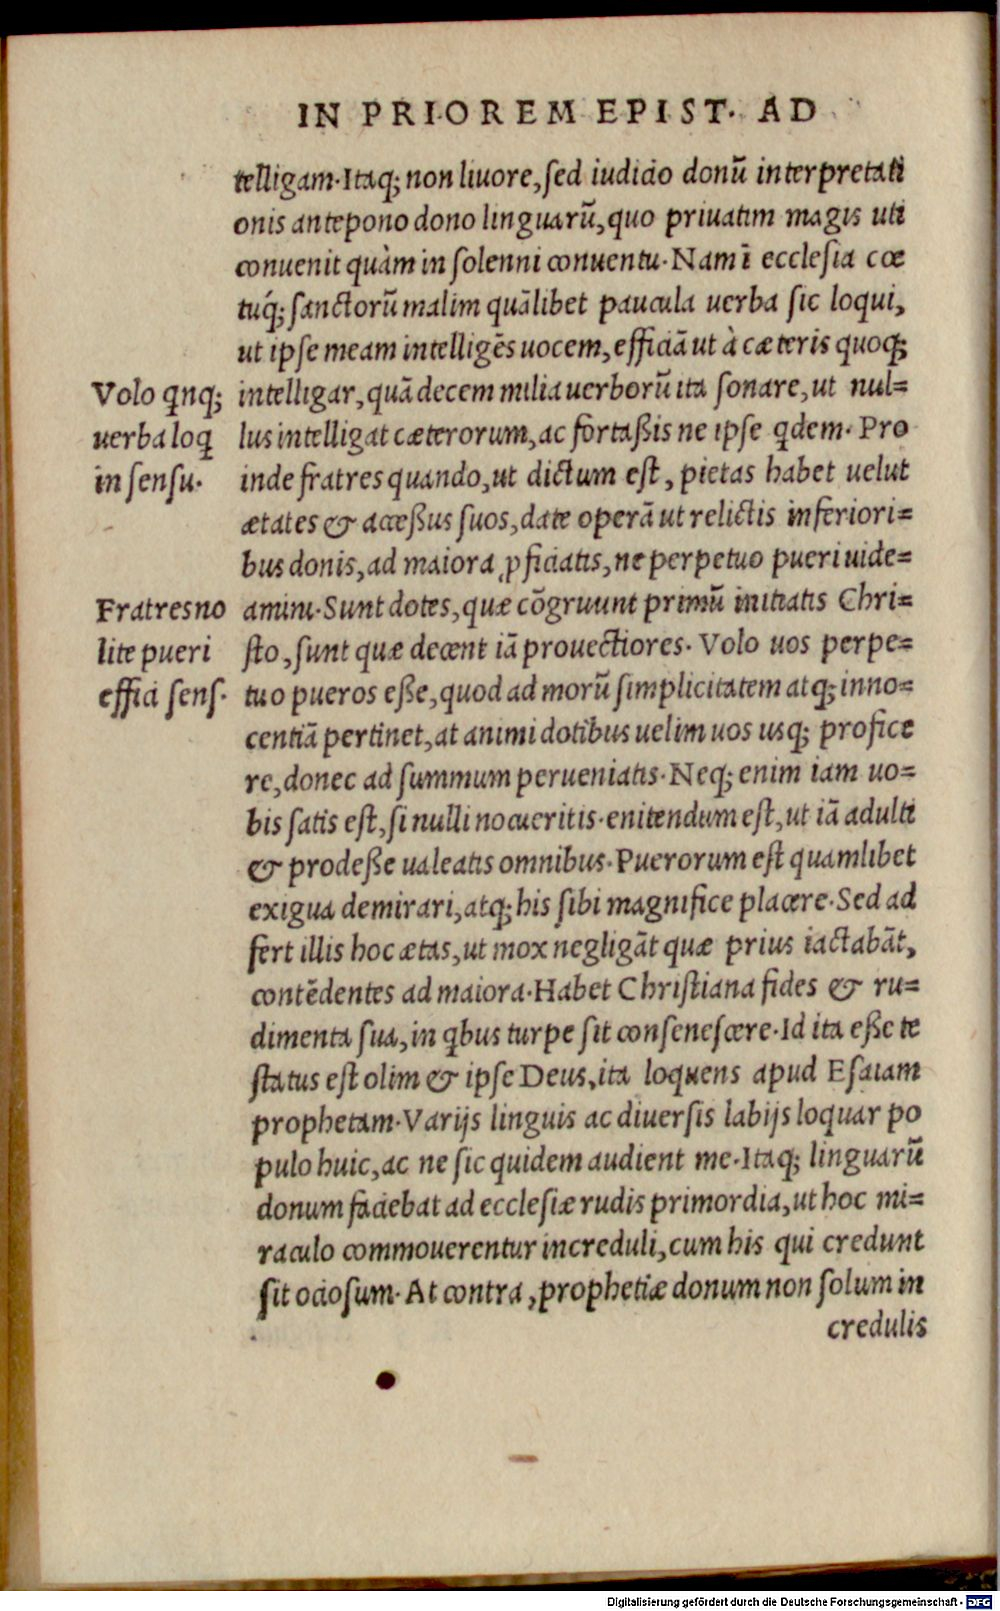 IN PRIOREM EPIST. AD
telligam. Itaq; non liuore, sed iudicio donũ interpretati
onis antepono dono linguarũ, quo priuatim magis uti
conuenit quàm in solenni conuentu. Nam ĩ ecclesia cœ
tuq́; sanctorũ malim quãlibet paucula uerba sic loqui,
ut ipse meam intelligẽs uocem, efficiã ut à cæteris quoq;
intelligar, quã decem milia uerborũ ita sonare, ut nul=
lus intelligat cæterorum, ac fortaßis ne ipse ꝗdem. Pro
inde fratres quando, ut dictum est, pietas habet uelut
ætates & acceßus suos, date operã ut relictis inferiori=
bus donis, ad maiora ꝓficiatis, ne perpetuo pueri uide=
amini. Sunt dotes, quæ cõgruunt primũ initiatis Chri=
sto, sunt quæ decent iã prouectiores. Volo uos perpe=
tuo pueros eße, quod ad morũ simplicitatem atq; inno=
centiã pertinet, at animi dotibus uelim uos usq; profice
re, donec ad summum perueniatis. Neq; enim iam uo=
bis satis est, si nulli nocueritis. enitendum est, ut iã adulti
& prodeße ualeatis omnibus. Puerorum est quamlibet
exigua demirari, atq; his sibi magnifice placere. Sed ad
fert illis hoc ætas, ut mox negligãt quæ prius iactabãt,
contẽdentes ad maiora. Habet Christiana fides & ru=
dimenta sua, in ꝗbus turpe sit consenescere. Id ita eße te
status est olim & ipse Deus, ita loquens apud Esaiam
prophetam. Varijs linguis ac diuersis labijs loquar po
pulo huic, ac ne sic quidem audient me. Itaq; linguarũ
donum faciebat ad ecclesiæ rudis primordia, ut hoc mi=
raculo commouerentur increduli, cum his qui credunt
sit ociosum. At contra, prophetiæ donum non solum in
credulis
Volo ꝗnq;
uerba loꝗ
in sensu.
Fratres no
lite pueri
effici sens.
Digitalisierung gefördert durch die Deutsche Forschungsgemeinschaft - DFG